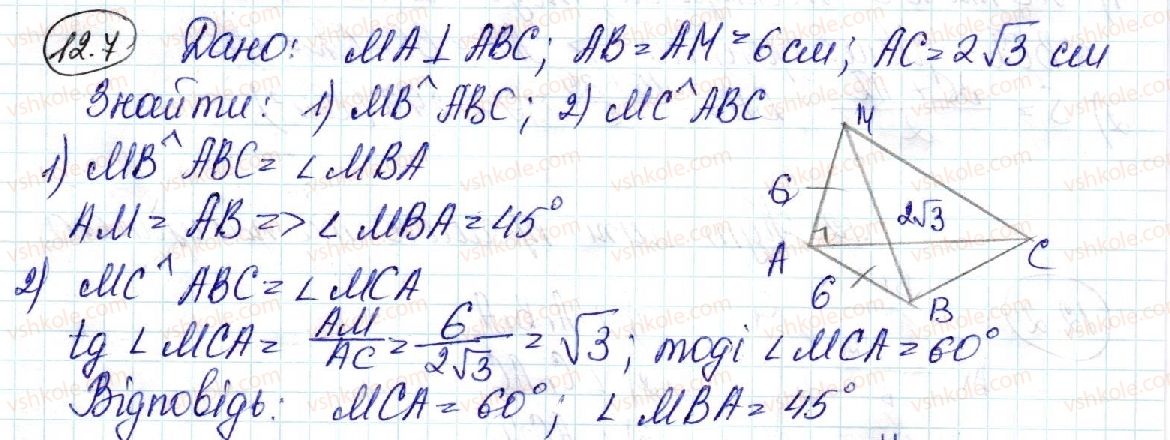 12.7 Дано: MA⊥ABC; AB=AM=6см; AC=2√3 см
Знайти: 1) MB^ABC; 2) MC^ABC
1) MB^ABC=∠MBA
AM=AB=>∠MBA=45°
2) MC^ABC=∠MCA
tg∠MCA=AM/AC=6/2√3=√3; тоді ∠MCA=60°
Відповідь: MCA=60°; ∠MBA=45°
M
6
2√3
A
C
6
B
vshkole.com